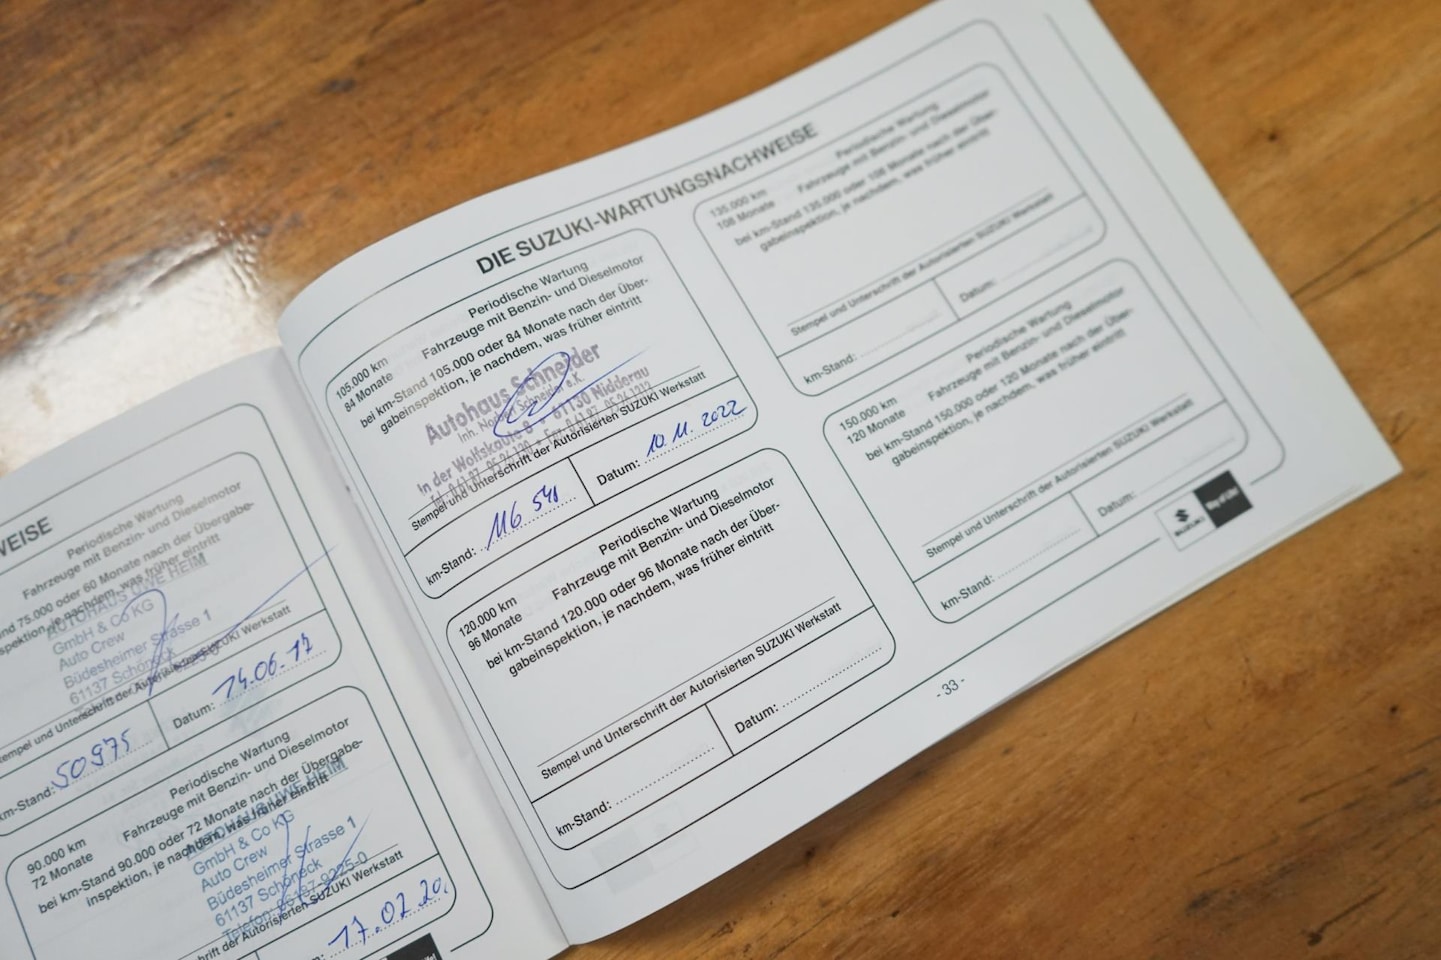 WEISE
Periodische Wartung
Fahrzeuge mit Benzin- und Dieselmotor
nd 75.000 oder 60 Monate nach der Übergabe-
spektion, je nachdem, was früher eintritt
AUTOHAUS UWE HEIM
GmbH & Co KG
Auto Crew
Büdesheimer Strasse 1
61137 Schöneck
tempel und Unterschrift der Autorisierten SUZUKI Werkstatt
km-Stand: 50975
Datum: 14.06.17
90.000 km
72 Monate
Periodische Wartung
Fahrzeuge mit Benzin- und Dieselmotor
bei km-Stand 90.000 oder 72 Monate nach der Übergabe-
inspektion, je nachdem, was früher eintritt
AUTOHAUS UWE HEIM
GmbH & Co KG
Auto Crew
Büdesheimer Strasse 1
61137 Schöneck
Telefon: 06187-9225-0
hrift der Autorisierten SUZUKI Werkstatt
17.02.20.
DIE SUZUKI-WARTUNGSNACHWEISE
105.000 km
84 Monate
Periodische Wartung
Fahrzeuge mit Benzin- und Dieselmotor
bei km-Stand 105.000 oder 84 Monate nach der Über-
gabeinspektion, je nachdem, was früher eintritt
Autohaus Schneider
Inh. Norbert Schneider e.K.
In der Wolfskaute 8 • 61130 Nidderau
Stempel und Unterschrift der Autorisierten SUZUKI Werkstatt
km-Stand: 116 541
Datum: 10.11.2022
120.000 km
96 Monate
Periodische Wartung
Fahrzeuge mit Benzin- und Dieselmotor
bei km-Stand 120.000 oder 96 Monate nach der Über-
gabeinspektion, je nachdem, was früher eintritt
Stempel und Unterschrift der Autorisierten SUZUKI Werkstatt
km-Stand:
Datum:
135.000 km
108 Monate
Periodische Wartung
Fahrzeuge mit Benzin- und Dieselmotor
bei km-Stand 135.000 oder 108 Monate nach der Über-
gabeinspektion, je nachdem, was früher eintritt
Stempel und Unterschrift der Autorisierten SUZUKI Werkstatt
km-Stand:
Datum:
150.000 km
120 Monate
Periodische Wartung
Fahrzeuge mit Benzin- und Dieselmotor
bei km-Stand 150.000 oder 120 Monate nach der Über-
gabeinspektion, je nachdem, was früher eintritt
Stempel und Unterschrift der Autorisierten SUZUKI Werkstatt
km-Stand:
Datum:
SUZUKI
Way of Life!
- 33 -